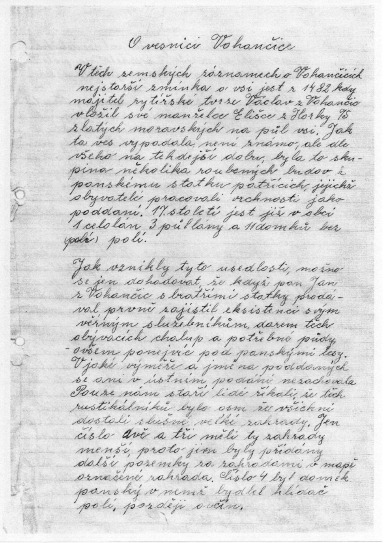 O vesnici Vohančice
V těch zemských záznamech o Vohančicích
nejstarší zmínka o vsi jest z 1482 kdy
majitel rytířské tvrze Václav z Vohančic
vložil své manželce Elišce z Horky 75
zlatých moravských na půl vsi. Jak
ta ves vypadala, není známo, ale dle
všeho na tehdejší dobu, byla to sku-
pina několika roubených budov k
panskému statku patřících, jejichž
obyvatelé pracovali vrchnosti jako
poddaní. 17 století jest již v obci
1 celolán, 3 půllány a 11 domků bez
polí.
Jak vznikly tyto usedlosti, možno
se jen dohadovat, že když pan Jan
z Vohančic s bratřími statky prodá-
val, prvně zajistil existenci svým
věrným služebníkům, darem těch
obývacích chalup a potřebné půdy
ovšem ponejvíc pod panskými lesy.
V jaké výměře a jména poddaných
se ani v ústním podání nezachovala
Pouze nám staří lidé říkali, že těch
rustikálníků bylo osm, že všichni
dostali slušné velké zahrady. Jen
číslo dvě a tři měli ty zahrady
menší, proto jim byly přidány
další pozemky za zahradami v mapě
označené zahrada. Číslo 4 byl domek
panský v němž bydlel hlídač
polí, později ovčín.